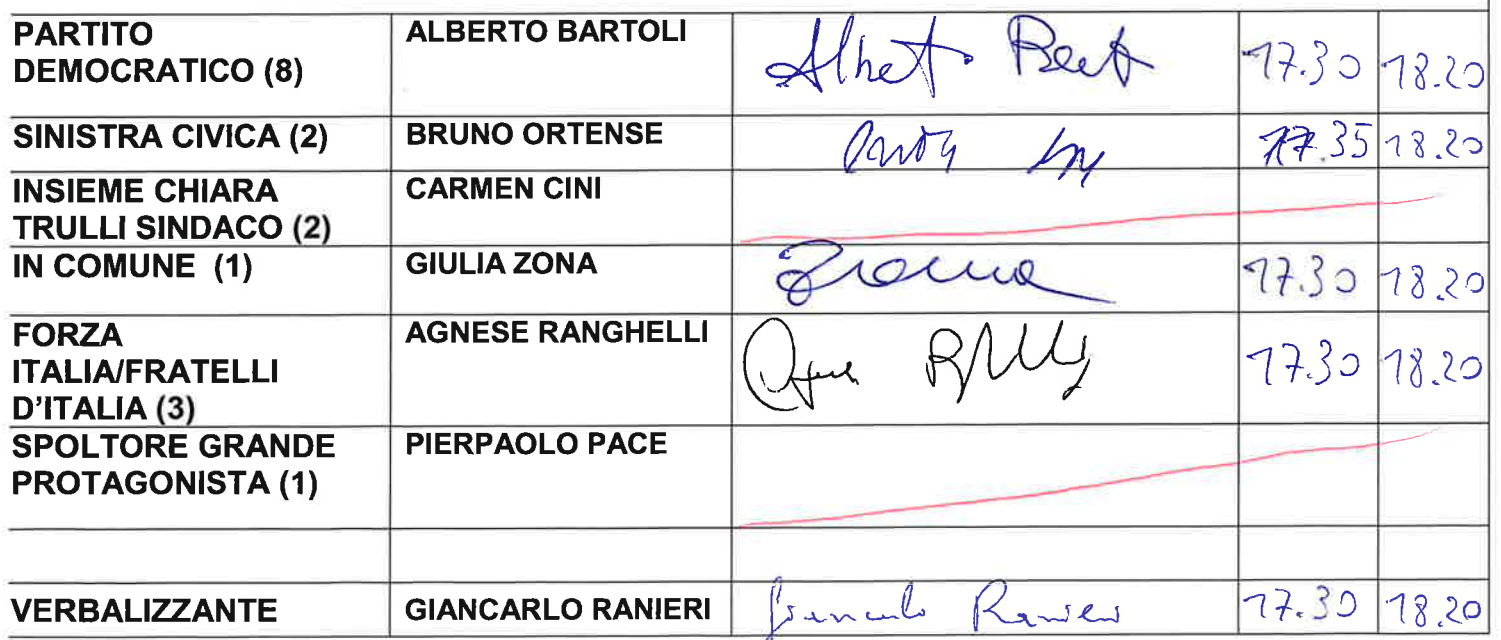 PARTITO DEMOCRATICO (8) ALBERTO BARTOLI 17.30 18.20
SINISTRA CIVICA (2) BRUNO ORTENSE 17.35 18.20
INSIEME CHIARA TRULLI SINDACO (2) CARMEN CINI
IN COMUNE (1) GIULIA ZONA 17.30 18.20
FORZA ITALIA/FRATELLI D'ITALIA (3) AGNESE RANGHELLI 17.30 18.20
SPOLTORE GRANDE PROTAGONISTA (1) PIERPAOLO PACE
VERBALIZZANTE GIANCARLO RANIERI Giancarlo Ranieri 17.30 18.20